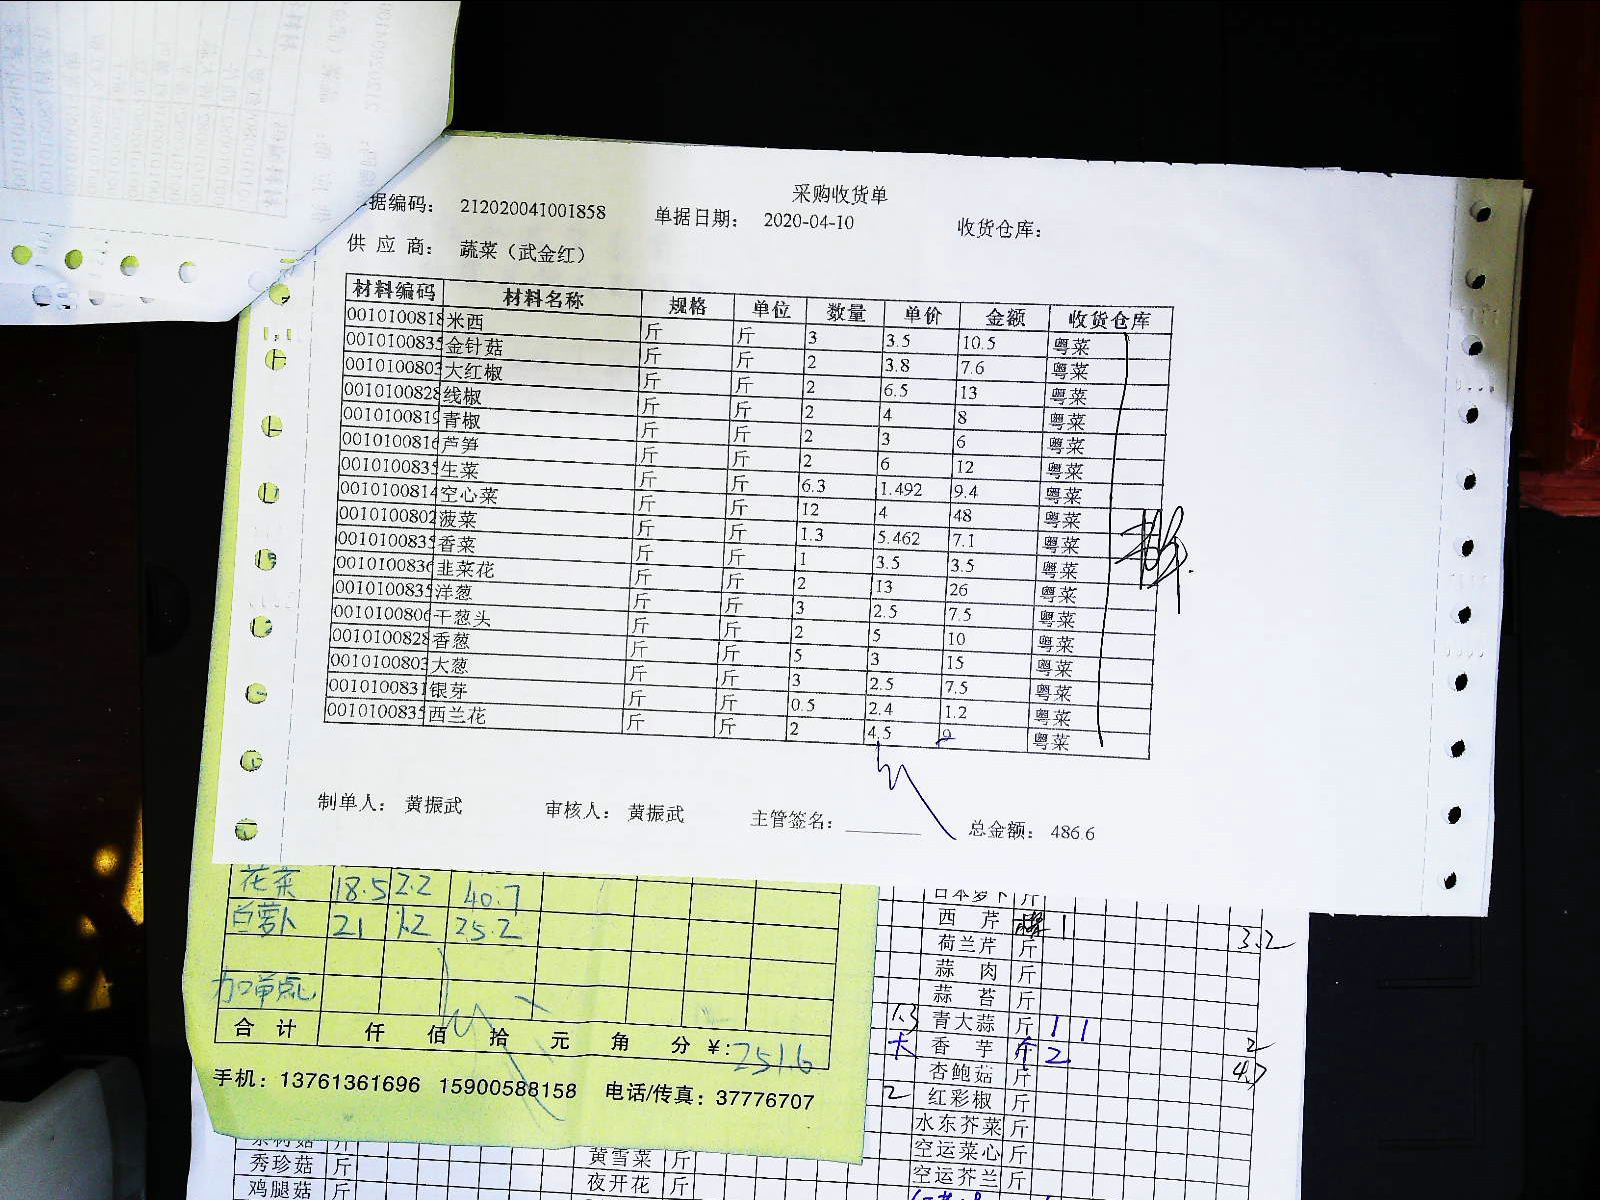 采购收货单
据编码： 212020041001858 单据日期： 2020-04-10 收货仓库：
供 应 商： 蔬菜（武金红）
材料编码 材料名称 规格 单位 数量 单价 金额 收货仓库
0010100818 米西 斤 斤 3 3.5 10.5 粤菜
0010100835 金针菇 斤 斤 2 3.8 7.6 粤菜
0010100803 大红椒 斤 斤 2 6.5 13 粤菜
0010100828 线椒 斤 斤 2 4 8 粤菜
0010100819 青椒 斤 斤 2 3 6 粤菜
0010100816 芦笋 斤 斤 2 6 12 粤菜
0010100835 生菜 斤 斤 6.3 1.492 9.4 粤菜
0010100814 空心菜 斤 斤 12 4 48 粤菜
0010100802 菠菜 斤 斤 1.3 5.462 7.1 粤菜
0010100835 香菜 斤 斤 1 3.5 3.5 粤菜
0010100836 韭菜花 斤 斤 2 13 26 粤菜
0010100835 洋葱 斤 斤 3 2.5 7.5 粤菜
0010100806 干葱头 斤 斤 2 5 10 粤菜
0010100828 香葱 斤 斤 5 3 15 粤菜
0010100803 大葱 斤 斤 3 2.5 7.5 粤菜
0010100831 银芽 斤 斤 0.5 2.4 1.2 粤菜
0010100835 西兰花 斤 斤 2 4.5 9 粤菜
制单人： 黄振武 审核人： 黄振武 主管签名： 总金额： 486.6
花菜 18.5 2.2 40.7
白萝卜 21 1.2 25.2
加单点
合 计 仟 佰 拾 元 角 分 ￥: 251.6
手机：13761361696 15900588158 电话/传真：37776707
日本萝卜 斤
西 芹 1 3.2
荷兰芹 斤
蒜 肉 斤
蒜 苔 斤
1.3 青大蒜 斤 1 1
香 芋 斤 2 2
杏鲍菇 斤 4.7
2 红彩椒 斤
水东芥菜 斤
空运菜心 斤
空运芥兰 斤
秀珍菇 斤 黄雪菜 斤
鸡腿菇 斤 夜开花 斤